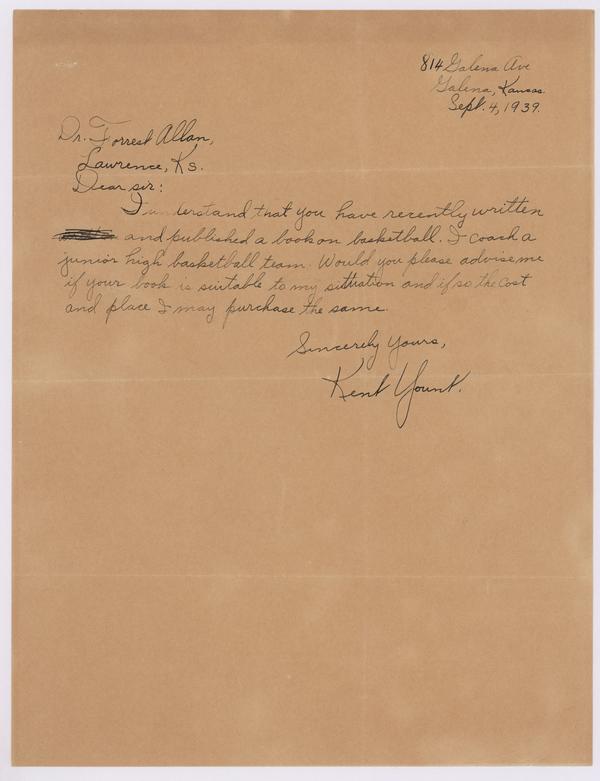 814 Galena Ave
Galena, Kansas.
Sept. 4, 1939.
Dr. Forrest Allan,
Lawrence, Ks.
Dear sir:
I understand that you have recently written
and published a book on basketball. I coach a
junior high basketball team. Would you please advise me
if your book is suitable to my sittuation and if so the cost
and place I may purchase the same.
Sincerely Yours,
Kent Yount.